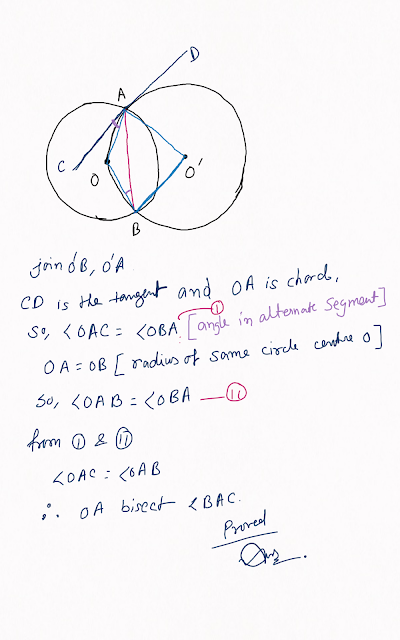 D
A
C
O
O'
B
join O'B, O'A
CD is the tangent and OA is chord,
So, <OAC = <OBA [angle in alternate Segment] ①
OA = OB [radius of same circle centre O]
So, <OAB = <OBA — ⑪
from ① & ⑪
<OAC = <OAB
∴ OA bisect <BAC.
Proved
Ans